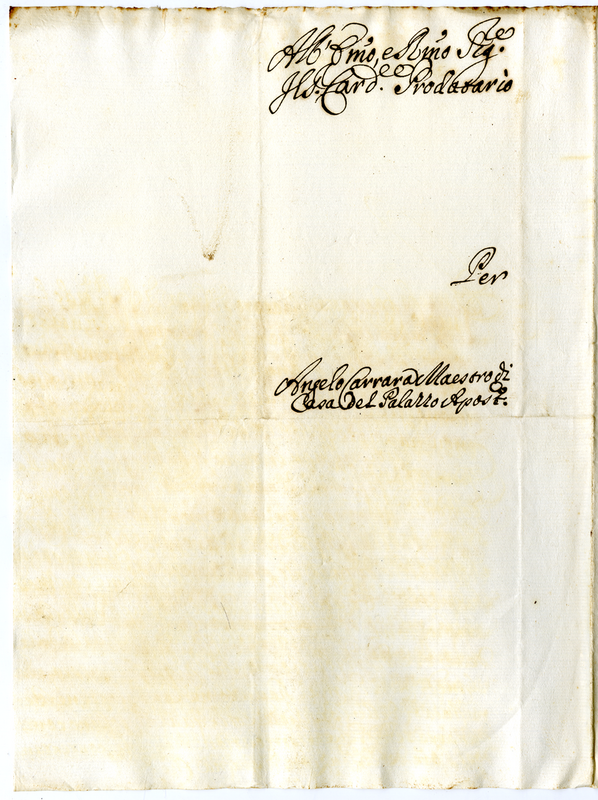 All' Emo, e Rmo Sig.re
Il S.r Card.le Prodatario
Per
Angelo Carrara Maestro di
Casa del Palazzo Apost.